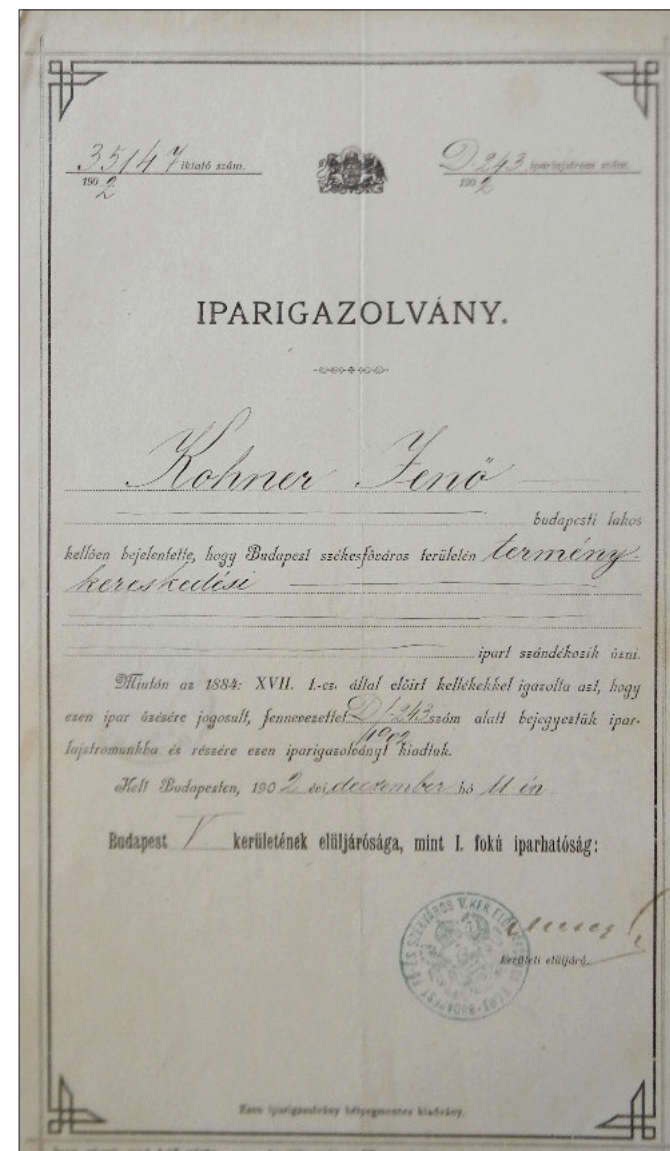 35147 iktató szám.
1902
D. 243 iparlajstrom szám.
1902
IPARIGAZOLVÁNY.
Kohner Jenő
budapesti lakos
kellően bejelentette, hogy Budapest székesfőváros területén termény-
kereskedési
ipart szándékozik űzni.
Miután az 1884: XVII. t.-cz. által előírt kellékekkel igazolta azt, hogy
ezen ipar űzésére jogosult, fennevezettet D/243 szám alatt bejegyeztük ipar-
1902
lajstromunkba és részére ezen iparigazolványt kiadtuk.
Kelt Budapesten, 1902 évi deczember hó 11-én
Budapest V kerületének elüljárósága, mint I. fokú iparhatóság:
kerületi elüljáró.
Ezen iparigazolvány bélyegmentes kiadvány.